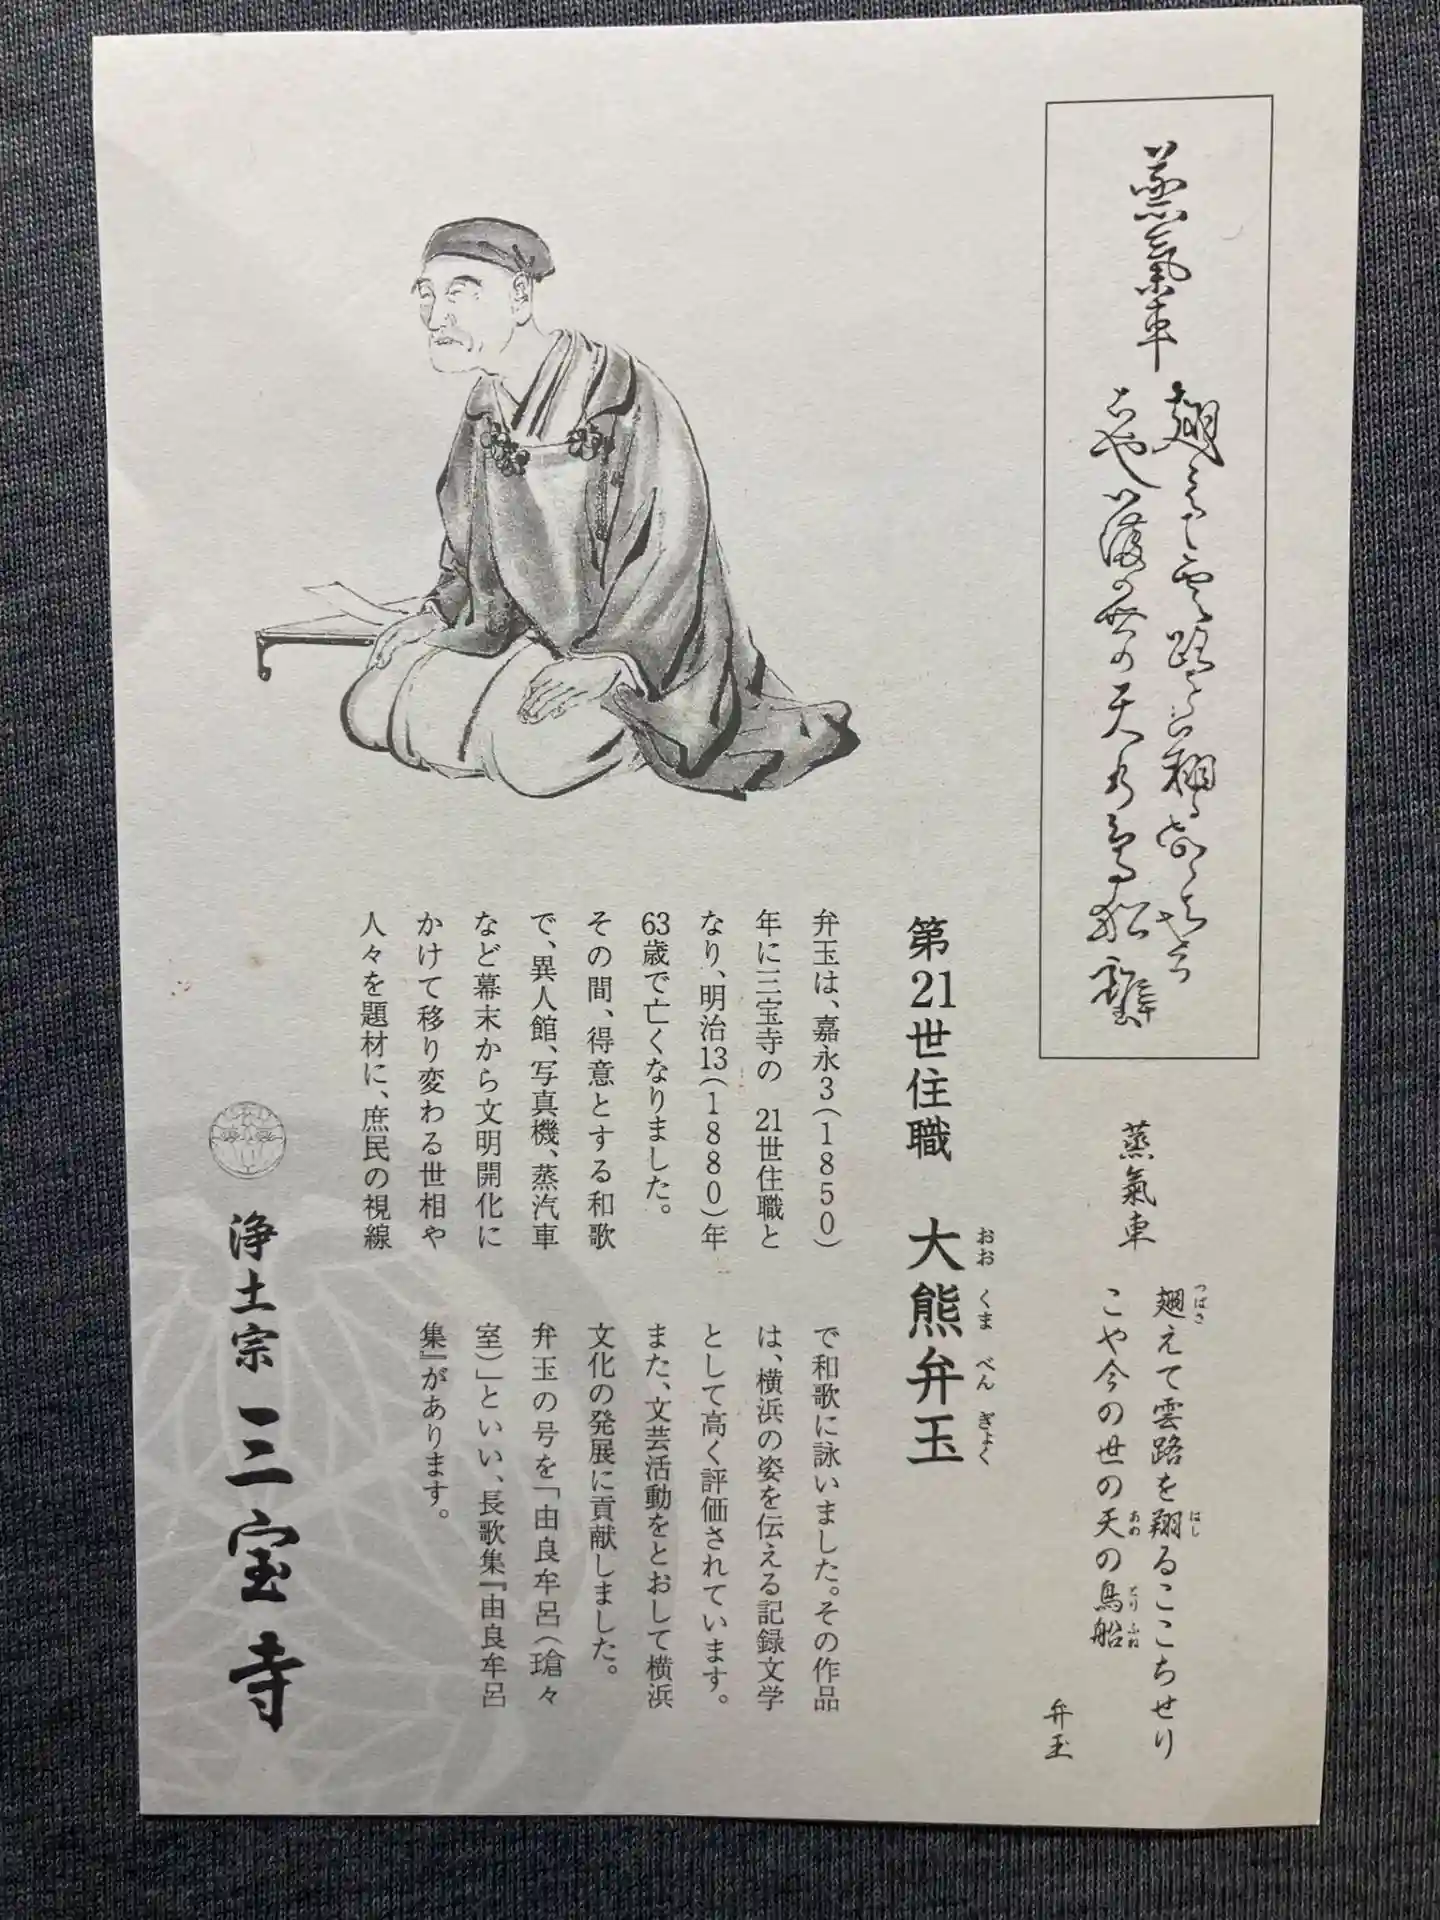 蒸氣車
翅えて雲路を翔るここちせり
こや今の世の天の鳥船
弁玉
第21世住職 大熊弁玉
おおくまべんぎょく
弁玉は、嘉永3(1850)
年に三宝寺の 21世住職と
なり、明治13(1880)年
63歳で亡くなりました。
その間、得意とする和歌
で、異人館、写真機、蒸汽車
など幕末から文明開化に
かけて移り変わる世相や
人々を題材に、庶民の視線
で和歌に詠いました。その作品
は、横浜の姿を伝える記録文学
として高く評価されています。
また、文芸活動をとおして横浜
文化の発展に貢献しました。
弁玉の号を「由良牟呂(瑲々
室)」といい、長歌集『由良牟呂
集』があります。
浄土宗 三宝寺